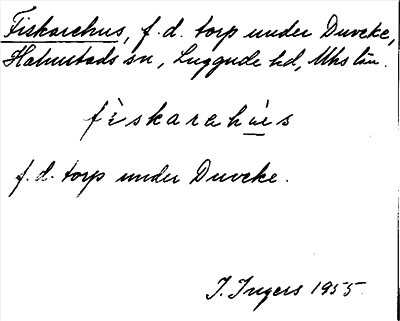 Fiskarehus, f.d. torp under Duveke,
Halmstads sn, Luggude hd, Mhs län.
fìskarehùs
f.d. torp under Duveke.
I. Ingers 1955.